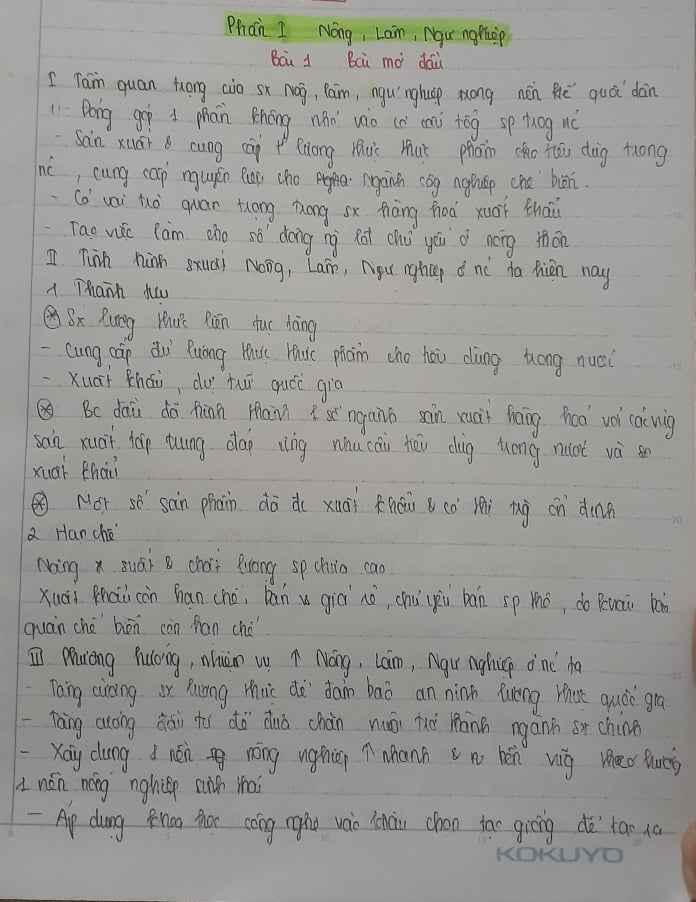 Phần I Nông, Lâm, Ngư nghiệp
Bài 1 Bài mở đầu
I Tầm quan trọng của sx Nôg, lâm, ngư nghiệp trong nền ktế quốc dân
1- Đóng góp 1 phần không nhỏ vào cơ cấu tổg sp trog nc
- Sản xuất & cung cấp lương thực thực phẩm cho tiêu dùg trong
nc, cung cấp nguyên liệu cho ngành côg nghiệp chế biến.
- Có vai trò quan trọng trong sx hàng hoá xuất khẩu
- Tạo việc làm cho số đông ng lđ chủ yếu ở nông thôn
II Tình hình sxuất Nông, Lâm, Ngư nghiệp ở nc ta hiện nay
1 Thành tựu
* Sx lương thực liên tục tăng
- Cung cấp đủ lương thực thực phẩm cho tiêu dùng trong nước
- Xuất khẩu, dự trữ quốc gia
* Bc đầu đã hình thành 1 số ngành sản xuất hàng hoá với các vùg
sản xuất tập trung đáp ứng nhu cầu tiêu dùg trong nước và
xuất khẩu
* Một số sản phẩm đã đc xuất khẩu & có thị trg ổn định
2 Hạn chế
Năng suất & chất lượng sp chưa cao
Xuất khẩu còn hạn chế, bán giá rẻ, chủ yếu bán sp thô, do bảo
quản chế biến còn hạn chế
III Phương hướng, nhiệm vụ ↑ Nông, Lâm, Ngư nghiệp ở nc ta
- Tăng cường sx lương thực để đảm bảo an ninh lương thực quốc gia
- Tăng cường đầu tư để đưa chăn nuôi trở thành ngành sx chính
- Xây dựng 1 nền nông nghiệp ↑ nhanh & bền vữg theo hướg
1 nền nông nghiệp sinh thái
- Áp dụng khoa học công nghệ vào khâu chọn tạo giống để tạo ra
KOKUYO